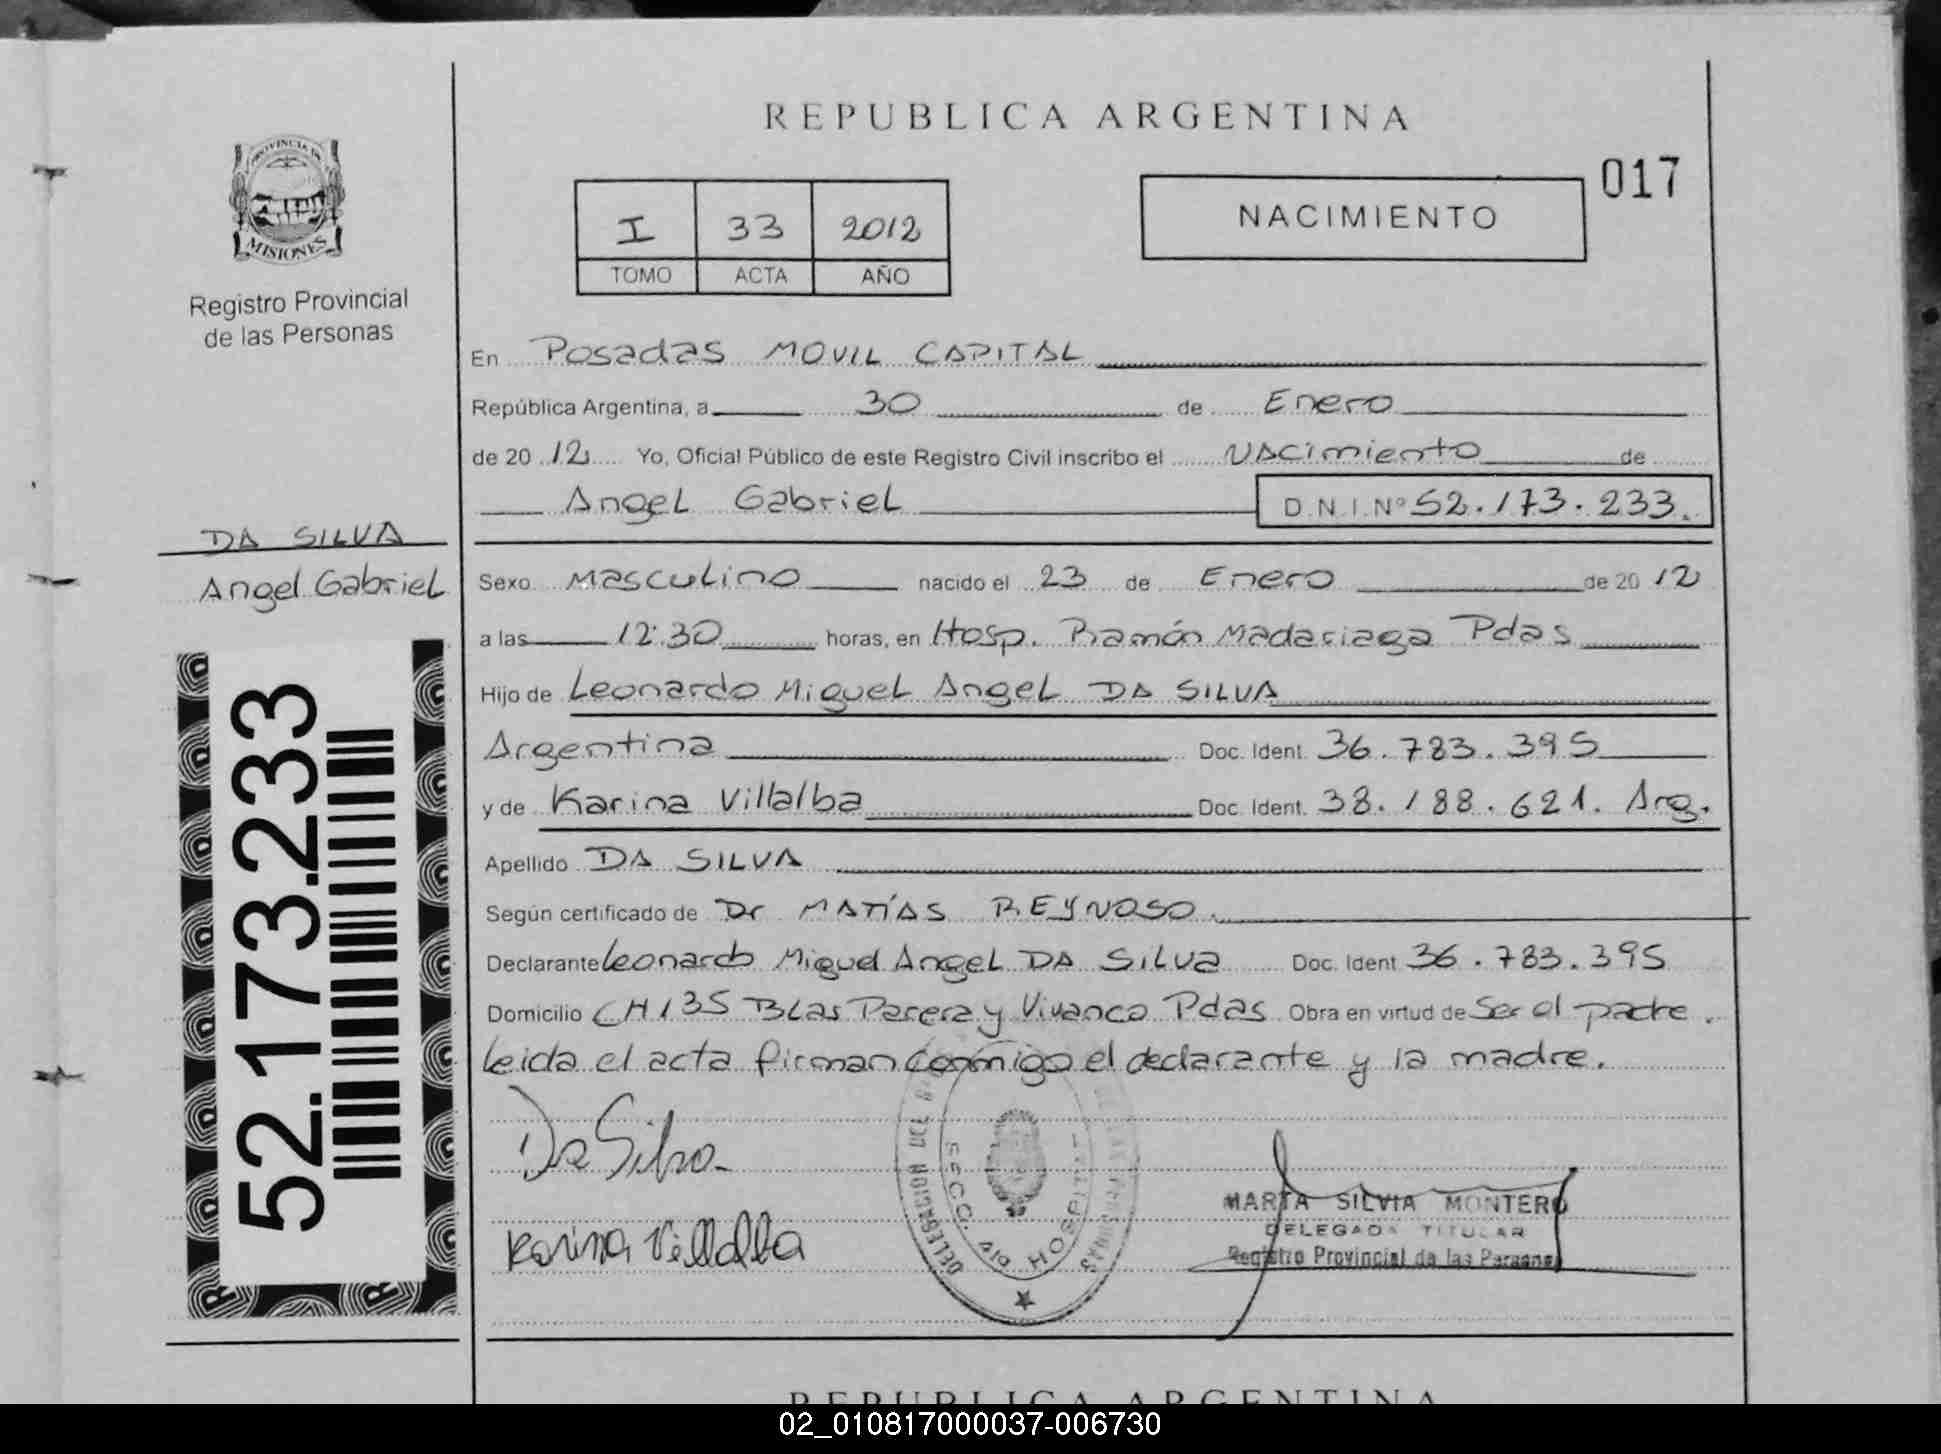 REPUBLICA ARGENTINA
017
NACIMIENTO
I 33 2012
TOMO ACTA AÑO
PROVINCIA DE
MISIONES
Registro Provincial
de las Personas
En Posadas MOVIL CAPITAL
República Argentina, a 30 de Enero
de 2012 Yo, Oficial Público de este Registro Civil inscribo el Nacimiento de
Angel Gabriel D.N.I. Nº 52.173.233.
DA SILVA
Angel Gabriel
52.173.233
Sexo Masculino nacido el 23 de Enero de 2012
a las 12:30 horas, en Hosp. Ramón Madariaga Pdas
Hijo de Leonardo Miguel Angel DA SILVA
Argentina Doc. Ident. 36.783.395
y de Karina Villalba Doc. Ident. 38.188.621. Arg.
Apellido DA SILVA
Según certificado de Dr MATÍAS REYNOSO.
Declarante Leonardo Miguel Angel DA SILVA Doc. Ident 36.783.395
Domicilio CH 135 Blas Parera y Vivanco Pdas Obra en virtud de Ser el padre.
leida el acta firman conmigo el declarante y la madre.
Da Silva
Karina Villalba
SECC. HOSPITAL
MARTA SILVIA MONTERO
DELEGADA TITULAR
Registro Provincial de las Personas
REPUBLICA ARGENTINA
02_010817000037-006730